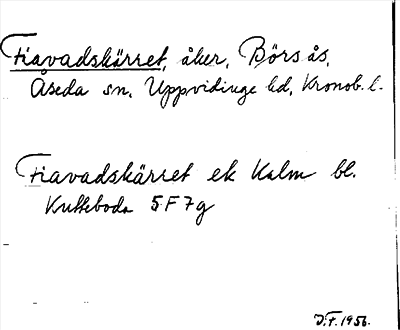 Fiavadskärret, åker, Börsås,
Åseda sn, Uppvidinge hd, Kronob. l.
Fiavadskärret ek Kalm bl.
Kulleboda 5F7g
J.F. 1956.